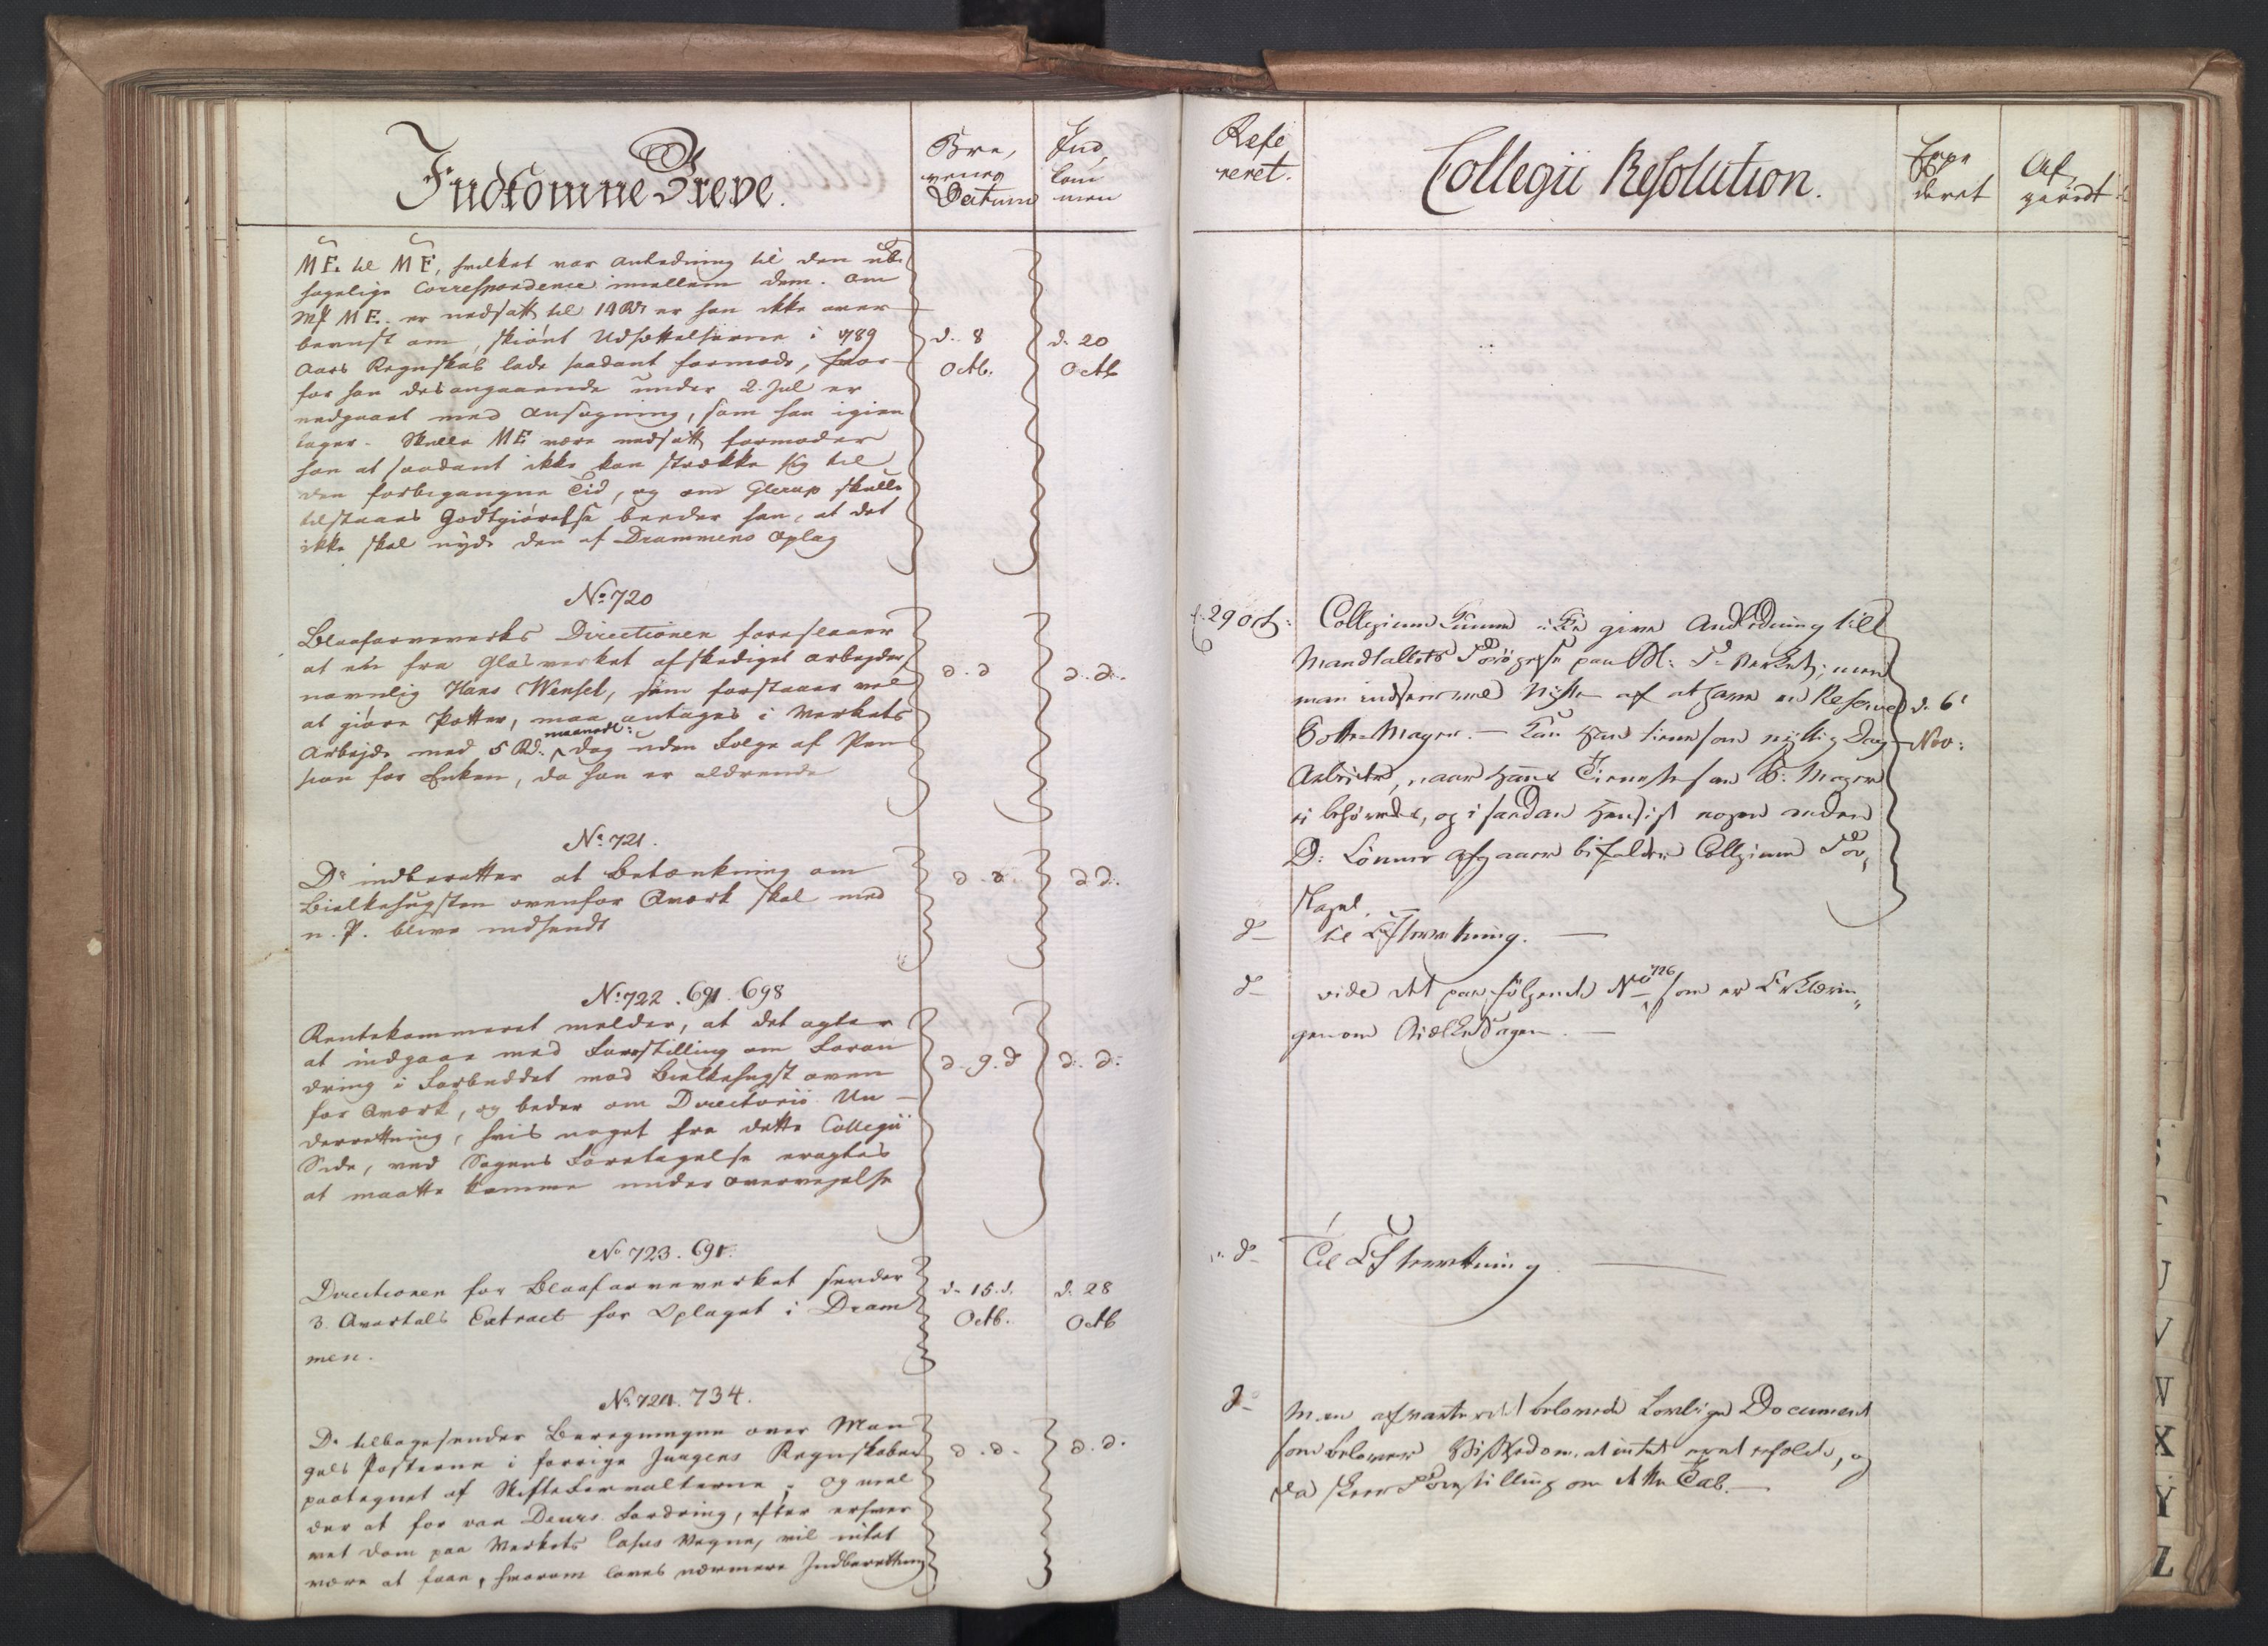 Indkomne Breve.
Bre,
venes
Datum
Ind,
kom
men
ME. til ME, hvilket var anledning til den ube
hagelige Correspondence imellem dem. Om
ME. er nedsatt til 19 Rdr er han ikke over
beviist om, skiönt Udsættelserne i 1789
Aars Regnskab lade saadant formode, hvor
for han des angaaende under 2. Jul er
nedgaaet med Ansøgning, som han igien
tager. Skulle ME være nedsatt, formoder
han at saadant ikke kan strække sig til
den forbigangne Tid, og om Glerup skulle
tilstaaes Godtgiörelse beeder han, at det
ikke skal nyde den af Drammens Oplag
d. 8
Octb.
d. 20
Octb
No. 720
Blaafarveverks Directionen foreslaaer
at en fra Glasverket afskediget arbejder
navnlig Hans Wensel, som forstaaer vel
at giöre Potter, maa antages i Verkets
Arbejde med 5 Rd. maanedl: dog uden Følge af Pen
sion for Enken, da han er aldrende
d. d
d. d.
No. 721.
Do indberetter at Betænkning om
Bielkehugsten ovenfor Qværk skal med
n. P. blive indsendt
d. d.
d. d.
No. 722. 691. 698
Rentekammeret melder, at det agter
at indgaae med Forestilling om Foran
dring i Forbuddet mod Bielkehugst oven
for Qværk, og beder om Directorii Un-
derretning, hvis noget fra dette Collegii
Side, ved Sagens Foretagelse eragtes
at maatte komme under overvejelse
d. 9. d
d. d.
No 723. 691.
Directionen for Blaafarveverket sender
3. Qvartals Extract for Oplaget i Dram
men.
d. 15. d.
Octb.
d. 28
Octb
No. 724. 734.
Do tilbagesender Beregningen over Man
gels Posterne i forrige Juugens Regnskaber
paategnet af Skifteforvalterne; og mel
der at for van Deurs Fordring, efter erhver
vet Dom paa Verkets Casses Vegne, vil intet
være at faae, hvorom loves nærmere Indberettning
d. d.
d. d.
Refe
reret.
Collegii Resolution.
Expe
deret
Af,
giordt
d. 29 Oct:
Collegium kunne ei give Andledning till
Mandtallets Forögelse paa Bl: F. Verket; men
man indseer vel Nytten af at have en Reserve
Potte-Mager. - Kan han tiene som nyttig Dag-
Arbeider, naar hans Tieneste som P. Mager
ei behövedes, og i saadan Hensigt nogen anden
D: Lönner afgaaer bifalder Collegium For,
slaget.
d. 6
Nov:
d-
til Efterretning.
d-
vide det paafölgende No 726 som er Erklærin,,
gen om Bielke Sagen.
d-
Til Efterrettning
d-
Man afvarter det belovede Lovlige Document
som beloves Vished om, at intet er at erholde, og
da skeer Forestilling om dette Tab.
U
V
W
X
Y
Z